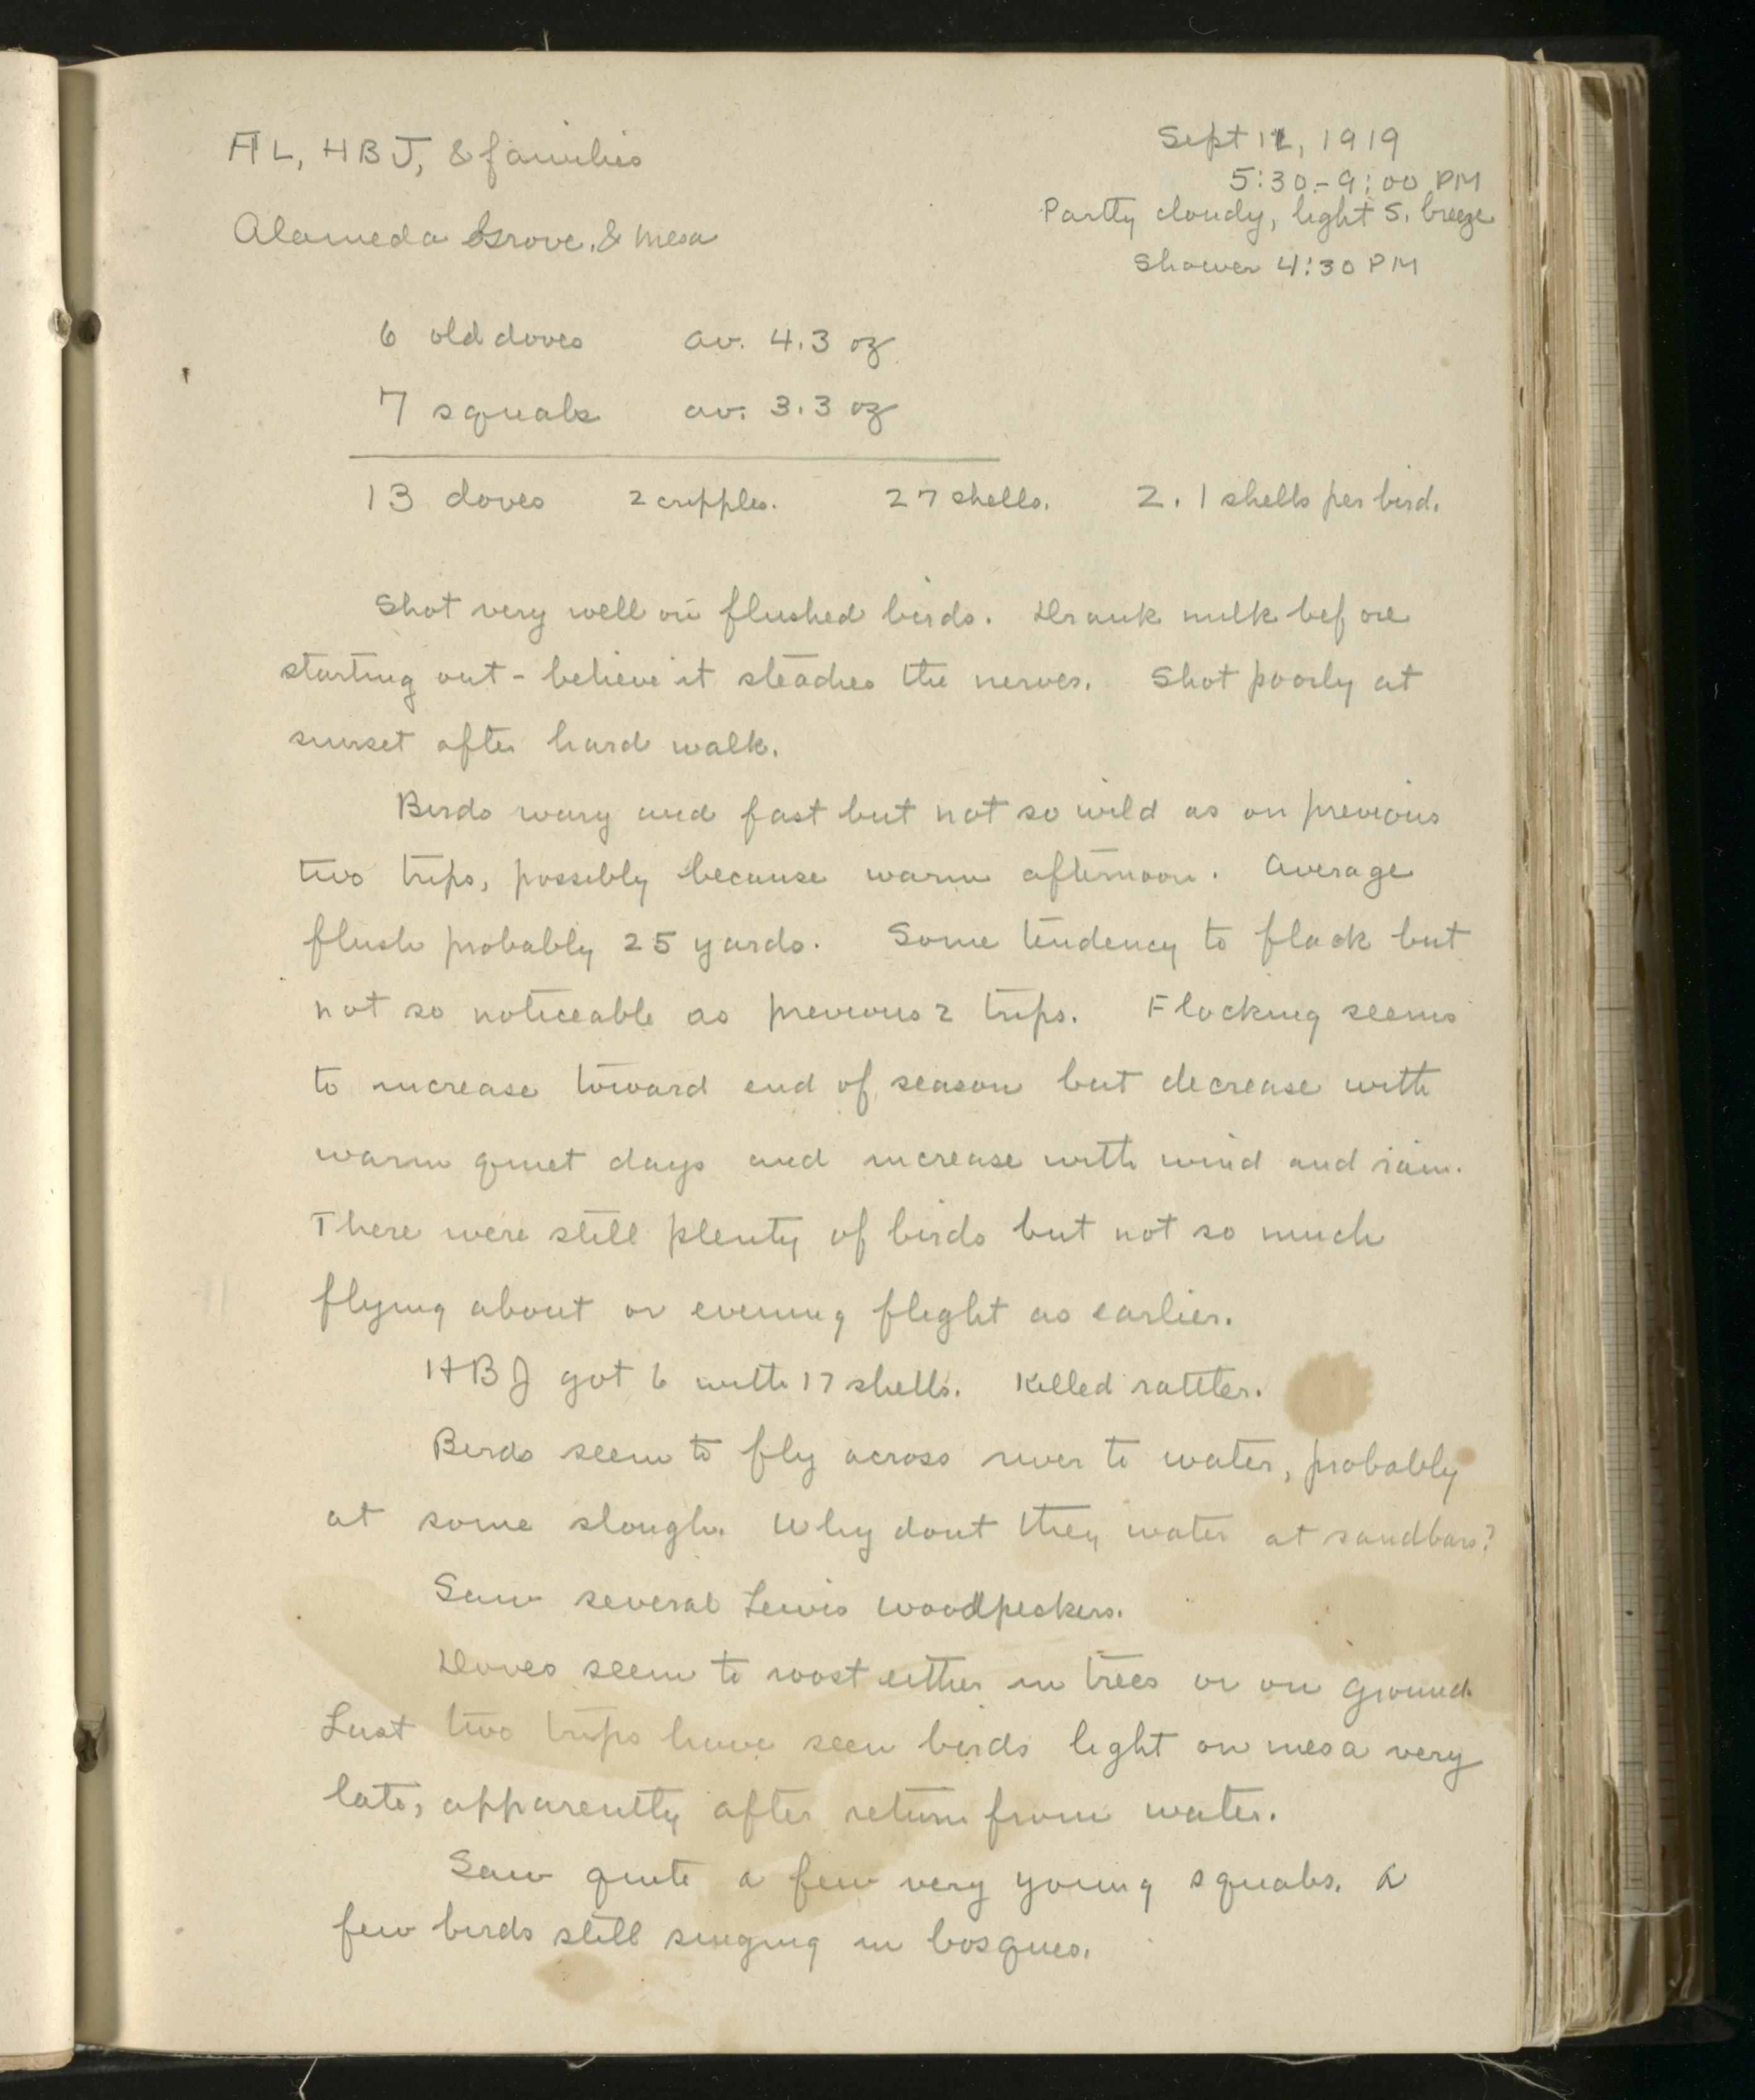 AL, HBJ, & families
Sept 11, 1919
5:30-9:00 PM
Alameda Grove, & mesa
Partly cloudy, light S. breeze
Shower 4:30 PM
6 old doves av. 4.3 oz
7 squabs av. 3.3 oz
13 doves 2 cripples. 27 shells. 2.1 shells per bird.
Shot very well on flushed birds. Drank milk before
starting out - believe it steadies the nerves. Shot poorly at
sunset after hard walk.
Birds wary and fast but not so wild as on previous
two trips, possibly because warm afternoon. Average
flush probably 25 yards. Some tendency to flock but
not so noticeable as previous 2 trips. Flocking seems
to increase toward end of season but decrease with
warm quiet days and increase with wind and rain.
There were still plenty of birds but not so much
flying about or evening flight as earlier.
HBJ got 6 with 17 shells. Killed rattler.
Birds seem to fly across river to water, probably
at some slough. Why dont they water at sandbars?
Saw several Lewis woodpeckers.
Doves seem to roost either in trees or on ground.
Last two trips have seen birds light on mesa very
late, apparently after return from water.
Saw quite a few very young squabs. A
few birds still singing in bosques.